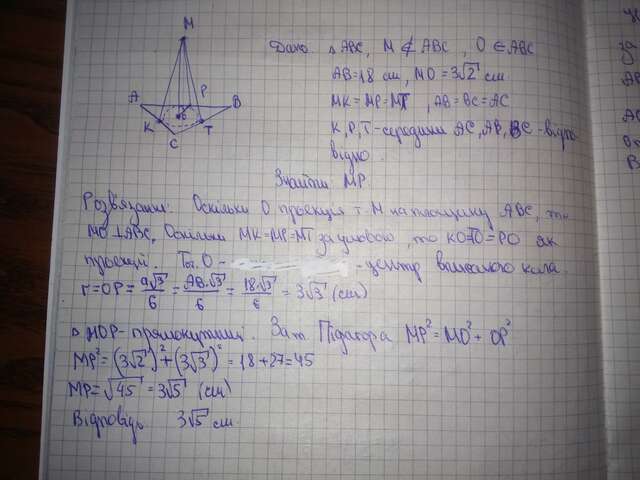 M
Дано △ ABC, M ∉ ABC, O ∈ ABC
AB=18 см, MO=3√2 см
A P B
MK=MP=MT, AB=BC=AC
O
K T
C
K, P, T-середини AC, AB, BC-відпо-
відно.
Знайти MP
Розв'язання: Оскільки O проекція т. M на площину ABC, то
MO⊥ABC, Оскільки MK=MP=MT за умовою, то KO=TO=PO як
проекції. Тоді O - - центр вписаного кола.
r=OP= a√3/6 = AB·√3/6 = 18√3/6 = 3√3 (см)
△ MOP-прямокутний. За т. Піфагора MP²=MO²+OP²
MP²=(3√2)²+(3√3)²=18+27=45
MP=√45=3√5 (см)
Відповідь 3√5 см.